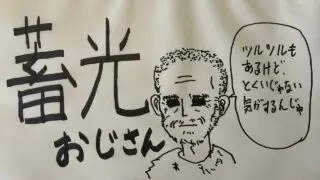 蓄光
おじさん
ツルツルも
あるけど、
とくいじゃない
気がするんじゃ